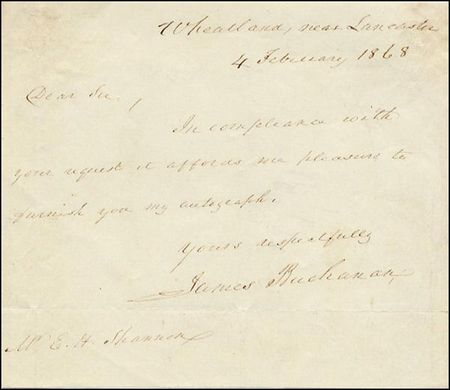 Wheatland, near Lancaster
4 February 1868
Dear Sir,
In compliance with
your request it affords me pleasure to
furnish you my autograph.
Yours respectfully
James Buchanan
Mr. E. H. Shannon